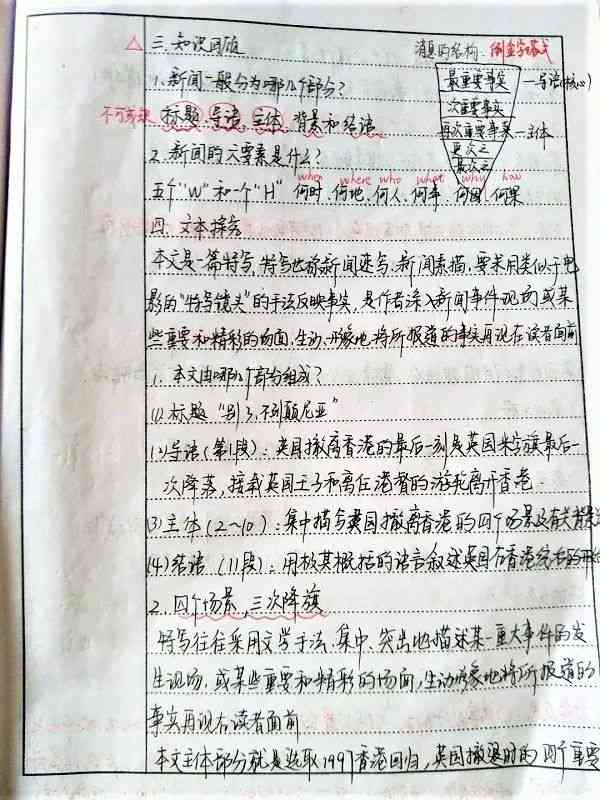 三.知识回顾
消息的结构: 倒金字塔式
1.新闻一般分为哪几个部分?
最重要事实 —导语(核心)
次重要事实
不可或缺 标题,导语,主体,背景和结语
再次重要事实 —主体
更次之
最次之
2.新闻的六要素是什么?
when where who what why how
五个"W"和一个"H" 何时.何地.何人.何事.何因.何果
四.文本探究
本文是一篇特写,特写也称新闻速写.新闻素描,要求用类似于电
影的"特写镜头"的手法反映事实,是作者深入新闻事件现场或某
些重要和精彩的场面,生动.形象地将所报道的事实再现在读者面前
1.本文由哪几个部分组成?
(1)标题"别了,不列颠尼亚"
(2)导语(第1段):英国撤离香港的最后一刻是英国米字旗最后一
次降落,接载英国王子和离任港督的游轮离开香港.
(3)主体(2~10):集中描写英国撤离香港的四个场景及有关背景
(4)结语(11段):用极其概括的语言叙述英国在香港统治的
2.四个场景,三次降旗
特写往往采用文学手法.集中、突出地描述某一重大事件的发
生现场,或某些重要和精彩的场面,生动形象地将所报道的
事实再现在读者面前
本文主体部分就是选取1997香港回归,英国撤退时的四个重要